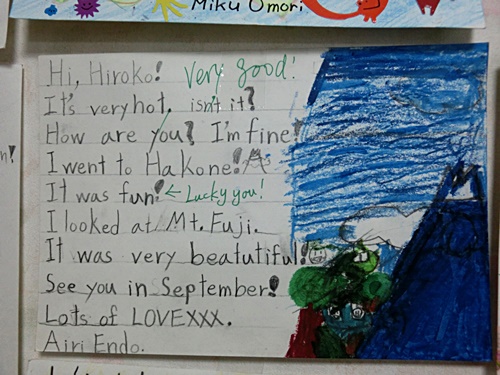 Miku Omori
Hi, Hiroko! Very good!
It's very hot, isn't it?
How are you? I'm fine!
I went to Hakone!
It was fun! ← Lucky you!
I looked at Mt. Fuji.
It was very beatutiful!
See you in September!
Lots of LOVEXXX.
Airi Endo.